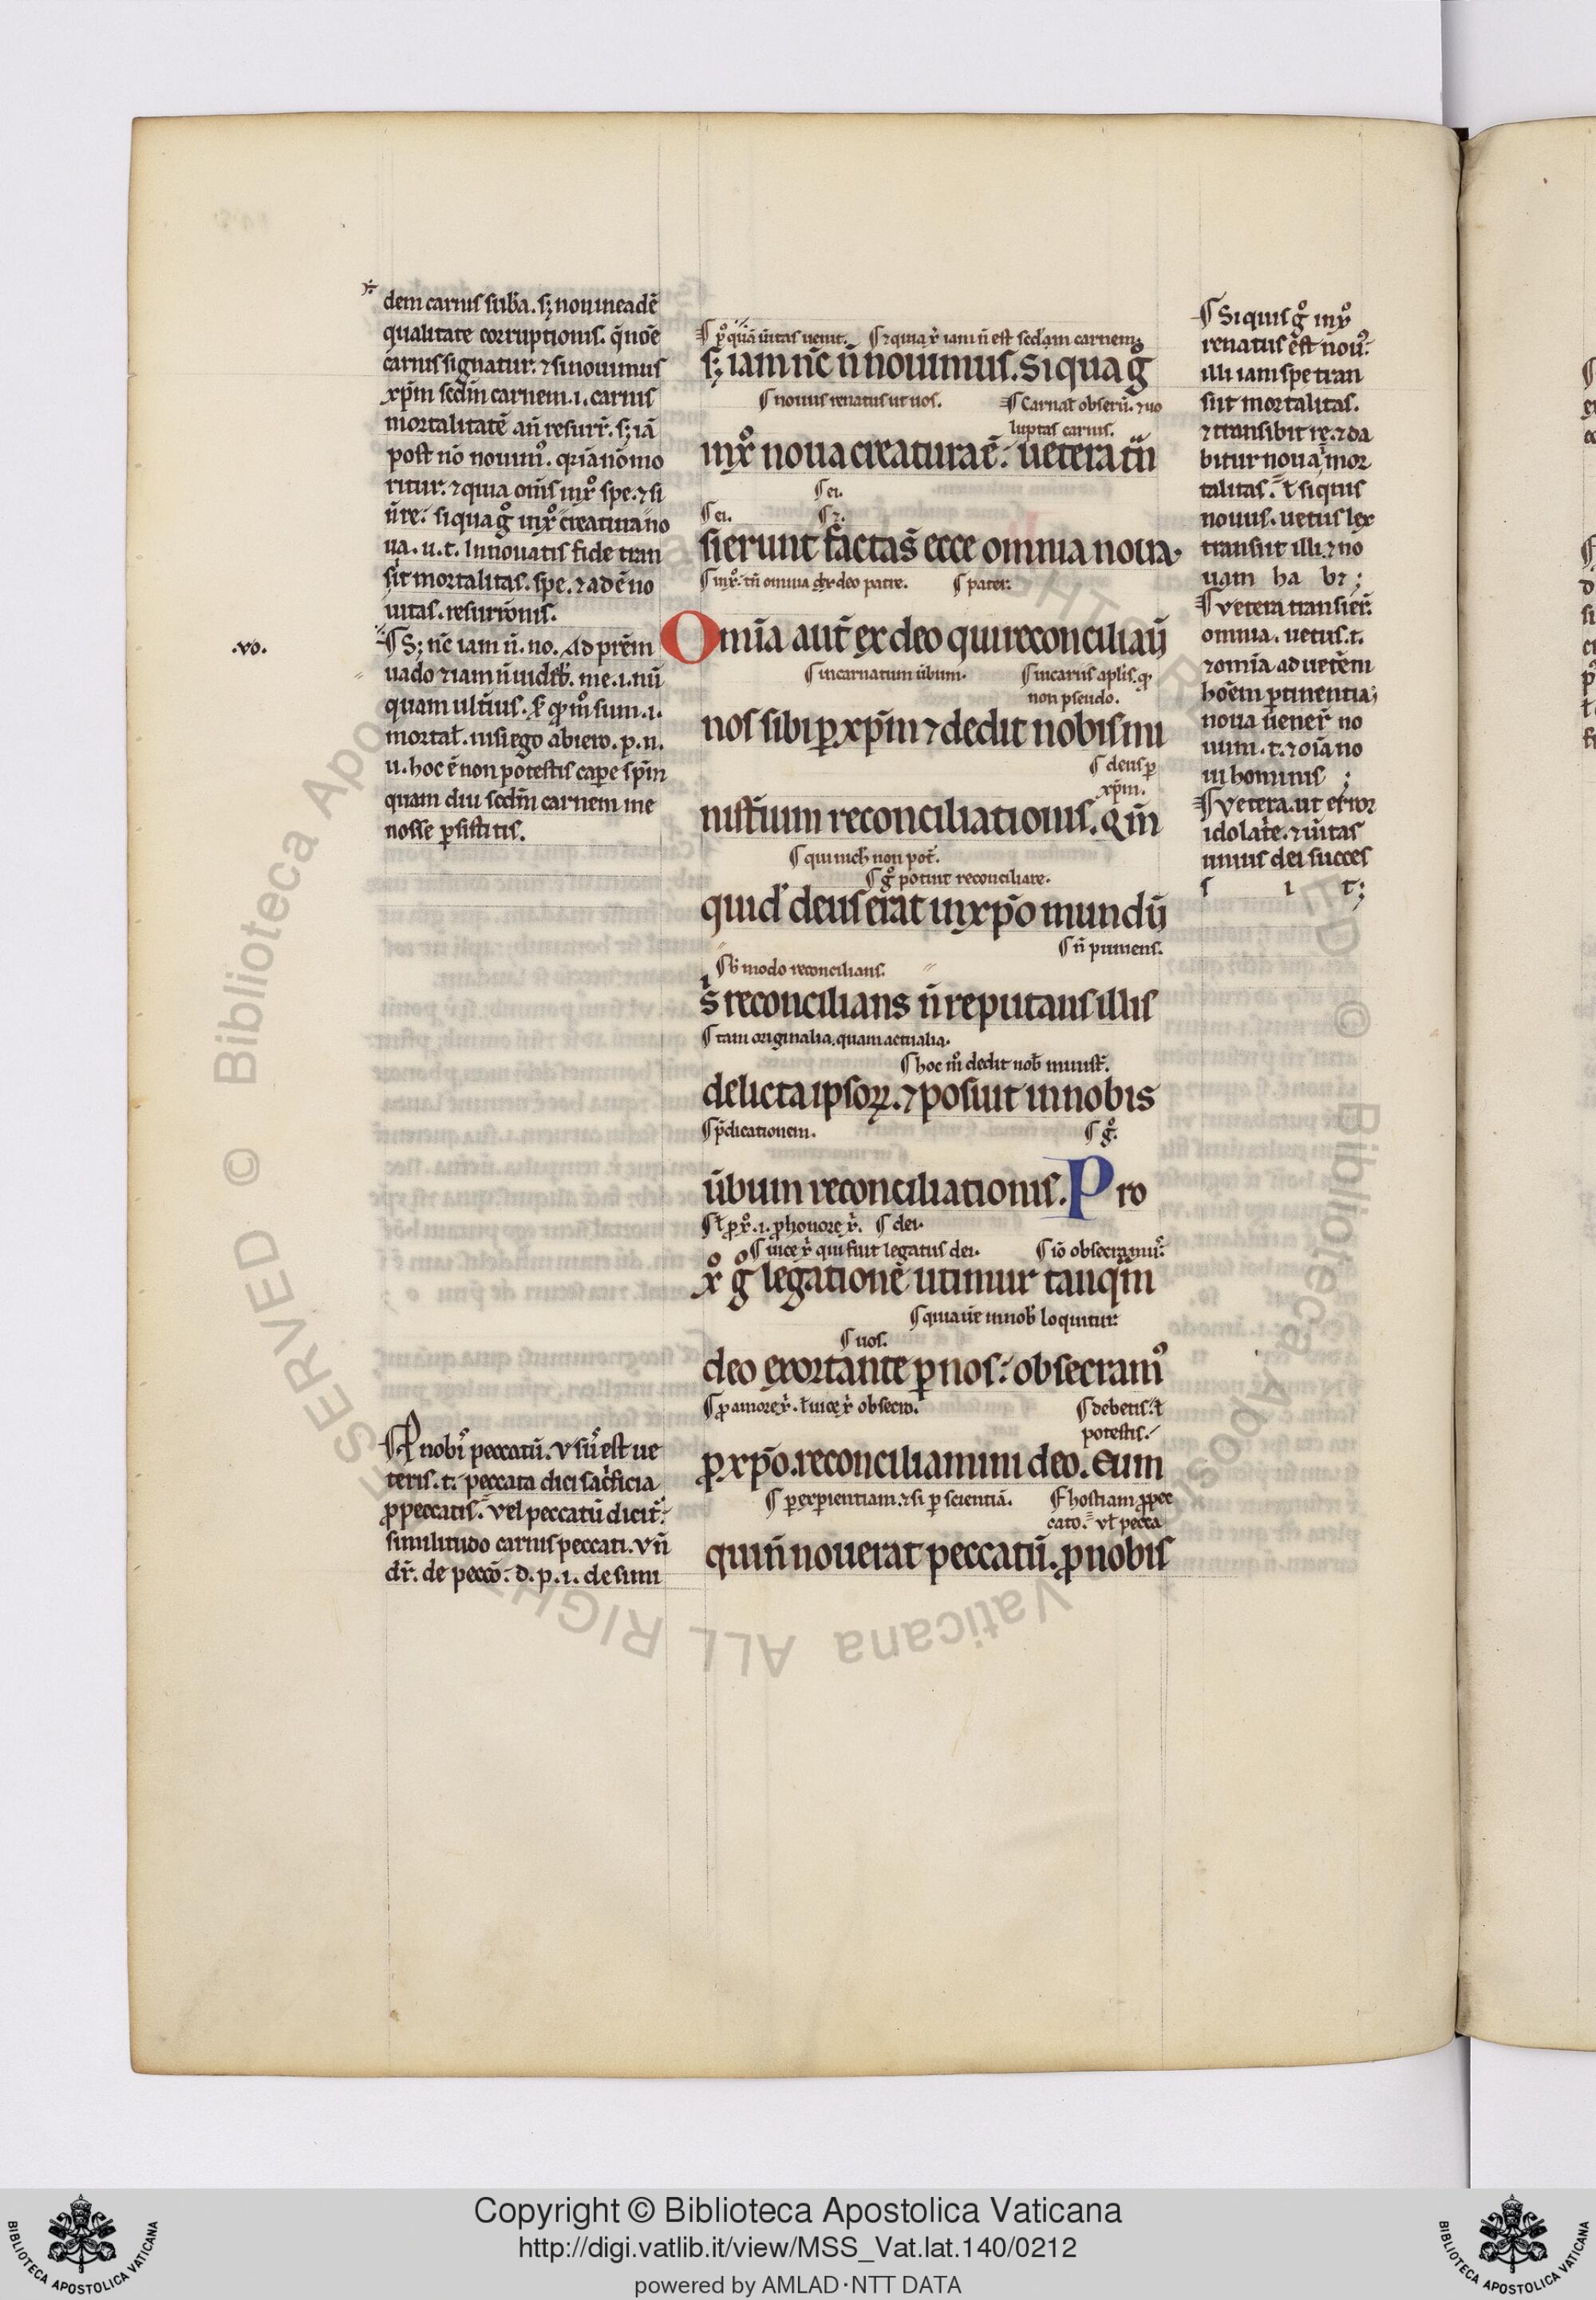 dem carnis sub̄a. sꝫ non in eadē
qualitate corruptionis. q̄ noīe
carnis signatur. ⁊ si nouimus
xp̄m scdm̄ carnem .i. carnis
mortalitatē an̄ resurr̄. sꝫ iā
post nō nouimꝰ. q̄ iā nō mo
ritur. ⁊ quia om̄s in xͦ spe. ⁊ si
n̄ re. si qua gͦ in xͦ creatura no
ua. u. t. Innouatis fide tran
sit mortalitas. spe. ⁊ ad ē no
uitas. resurrōnis.
.vo.
¶ Sꝫ nc̄ iam n̄. no. Ad pr̄em
uado ⁊ iam n̄ uideb̄. me .i. nū
quam ulterius.
mortal̄. nisi ego abiero. p. n.
u. hoc ē non potestis cape sp̄m
quam diu scdm̄ carnem me
nosse ꝑsistitis.
nobis peccatū. Vsus est ue
teris. t. peccata dici sacrificia
ꝓ peccatis. Vel peccatū dicit̄
similitudo carnis peccati. Vn̄
dr̄. de pecco. d. p. i. de simi
ueritas uenit. ¶ ⁊ quia xͥ iam n̄ est scdam carnem.
sꝫ iam nc̄ n̄ nouimus. Si qua gͦ
¶ nouus renatus ut uos. ¶ Carnal̄ obseru. ⁊ uo
luptas carnis.
in xͦ noua creatura ē. uetera tn̄
¶ ei.
¶ ei. ¶ ⁊.
sierunt facta s̄ ecce omnia noua.
¶ in xͦ. tn̄ omnia ex deo patre. ¶ pater.
Omīa aut̄ ex deo qui reconciliaū
¶ incarnatum ūbum. ¶ in caris aplīs. ꝙ
non pseudo.
nos sibi ꝑ xp̄m ⁊ dedit nobis mi
¶ deus ꝑ
xp̄m.
nist̄ium reconciliationis. Qm̄
¶ qui mch̄ non pot̄.
¶ gͦ potuit reconciliare.
quid̄ deus erat in xp̄o mundū
¶ n̄ puniens.
¶ modo reconcilians.
s̄ reconcilians n̄ reputans illis
¶ tam originalia. quam actualia.
¶ hoc mͦ dedit nob̄ minist̄.
delicta ipsoꝝ. ⁊ posuit in nobis
¶ p̄dicationem. ¶ gͦ.
ūbum reconciliationis. Pro
¶ ł ꝓ xͦ .i. ꝓ honore xͥ. ¶ dei.
¶ uice xͥ qui fuit legatus dei. ¶ iō obsecramus.
xͦ gͦ legationē utimur tanqm̄
¶ quia ūe in nob̄ loquitur.
¶ uos.
deo exortante ꝑ nos. obsecramꝰ
¶ ꝓ amore xͥ. ł uice xͥ obsecro. ¶ debetis. ł
potestis.
ꝓ xp̄o. reconciliamini deo. Eum
¶ ꝑ experientiam. ⁊ si ꝑ scientiā. ¶ hostiam ꝓ pec
cato. ul̄ pecca
qui n̄ nouerat peccatū. ꝓ nobis
¶ Si quis gͦ in xͦ
renatus est nouꝰ.
illi iam spe tran
siit mortalitas.
⁊ transibit re. ⁊ da
bitur noua īmor
talitas. ł si quis
nouus. uetus lex
transiit illi ⁊ no
uam ha bꝫ ;
¶ Vetera transier̄.
omnia. uetus. t.
⁊ omīa ad uetēm
hoēm ꝑtinentia;
noua ūener̄ no
uum. t. ⁊ oīa no
ui hominis ;
¶ Vetera. ut error
idolatr̄e. ⁊ ūitas
unius dei succes
s i t;
Copyright © Biblioteca Apostolica Vaticana
http://digi.vatlib.it/view/MSS_Vat.lat.140/0212
powered by AMLAD·NTT DATA
BIBLIOTECA APOSTOLICA VATICANA
BIBLIOTECA APOSTOLICA VATICANA
© Biblioteca Apostolica Vaticana ALL RIGHTS RESERVED